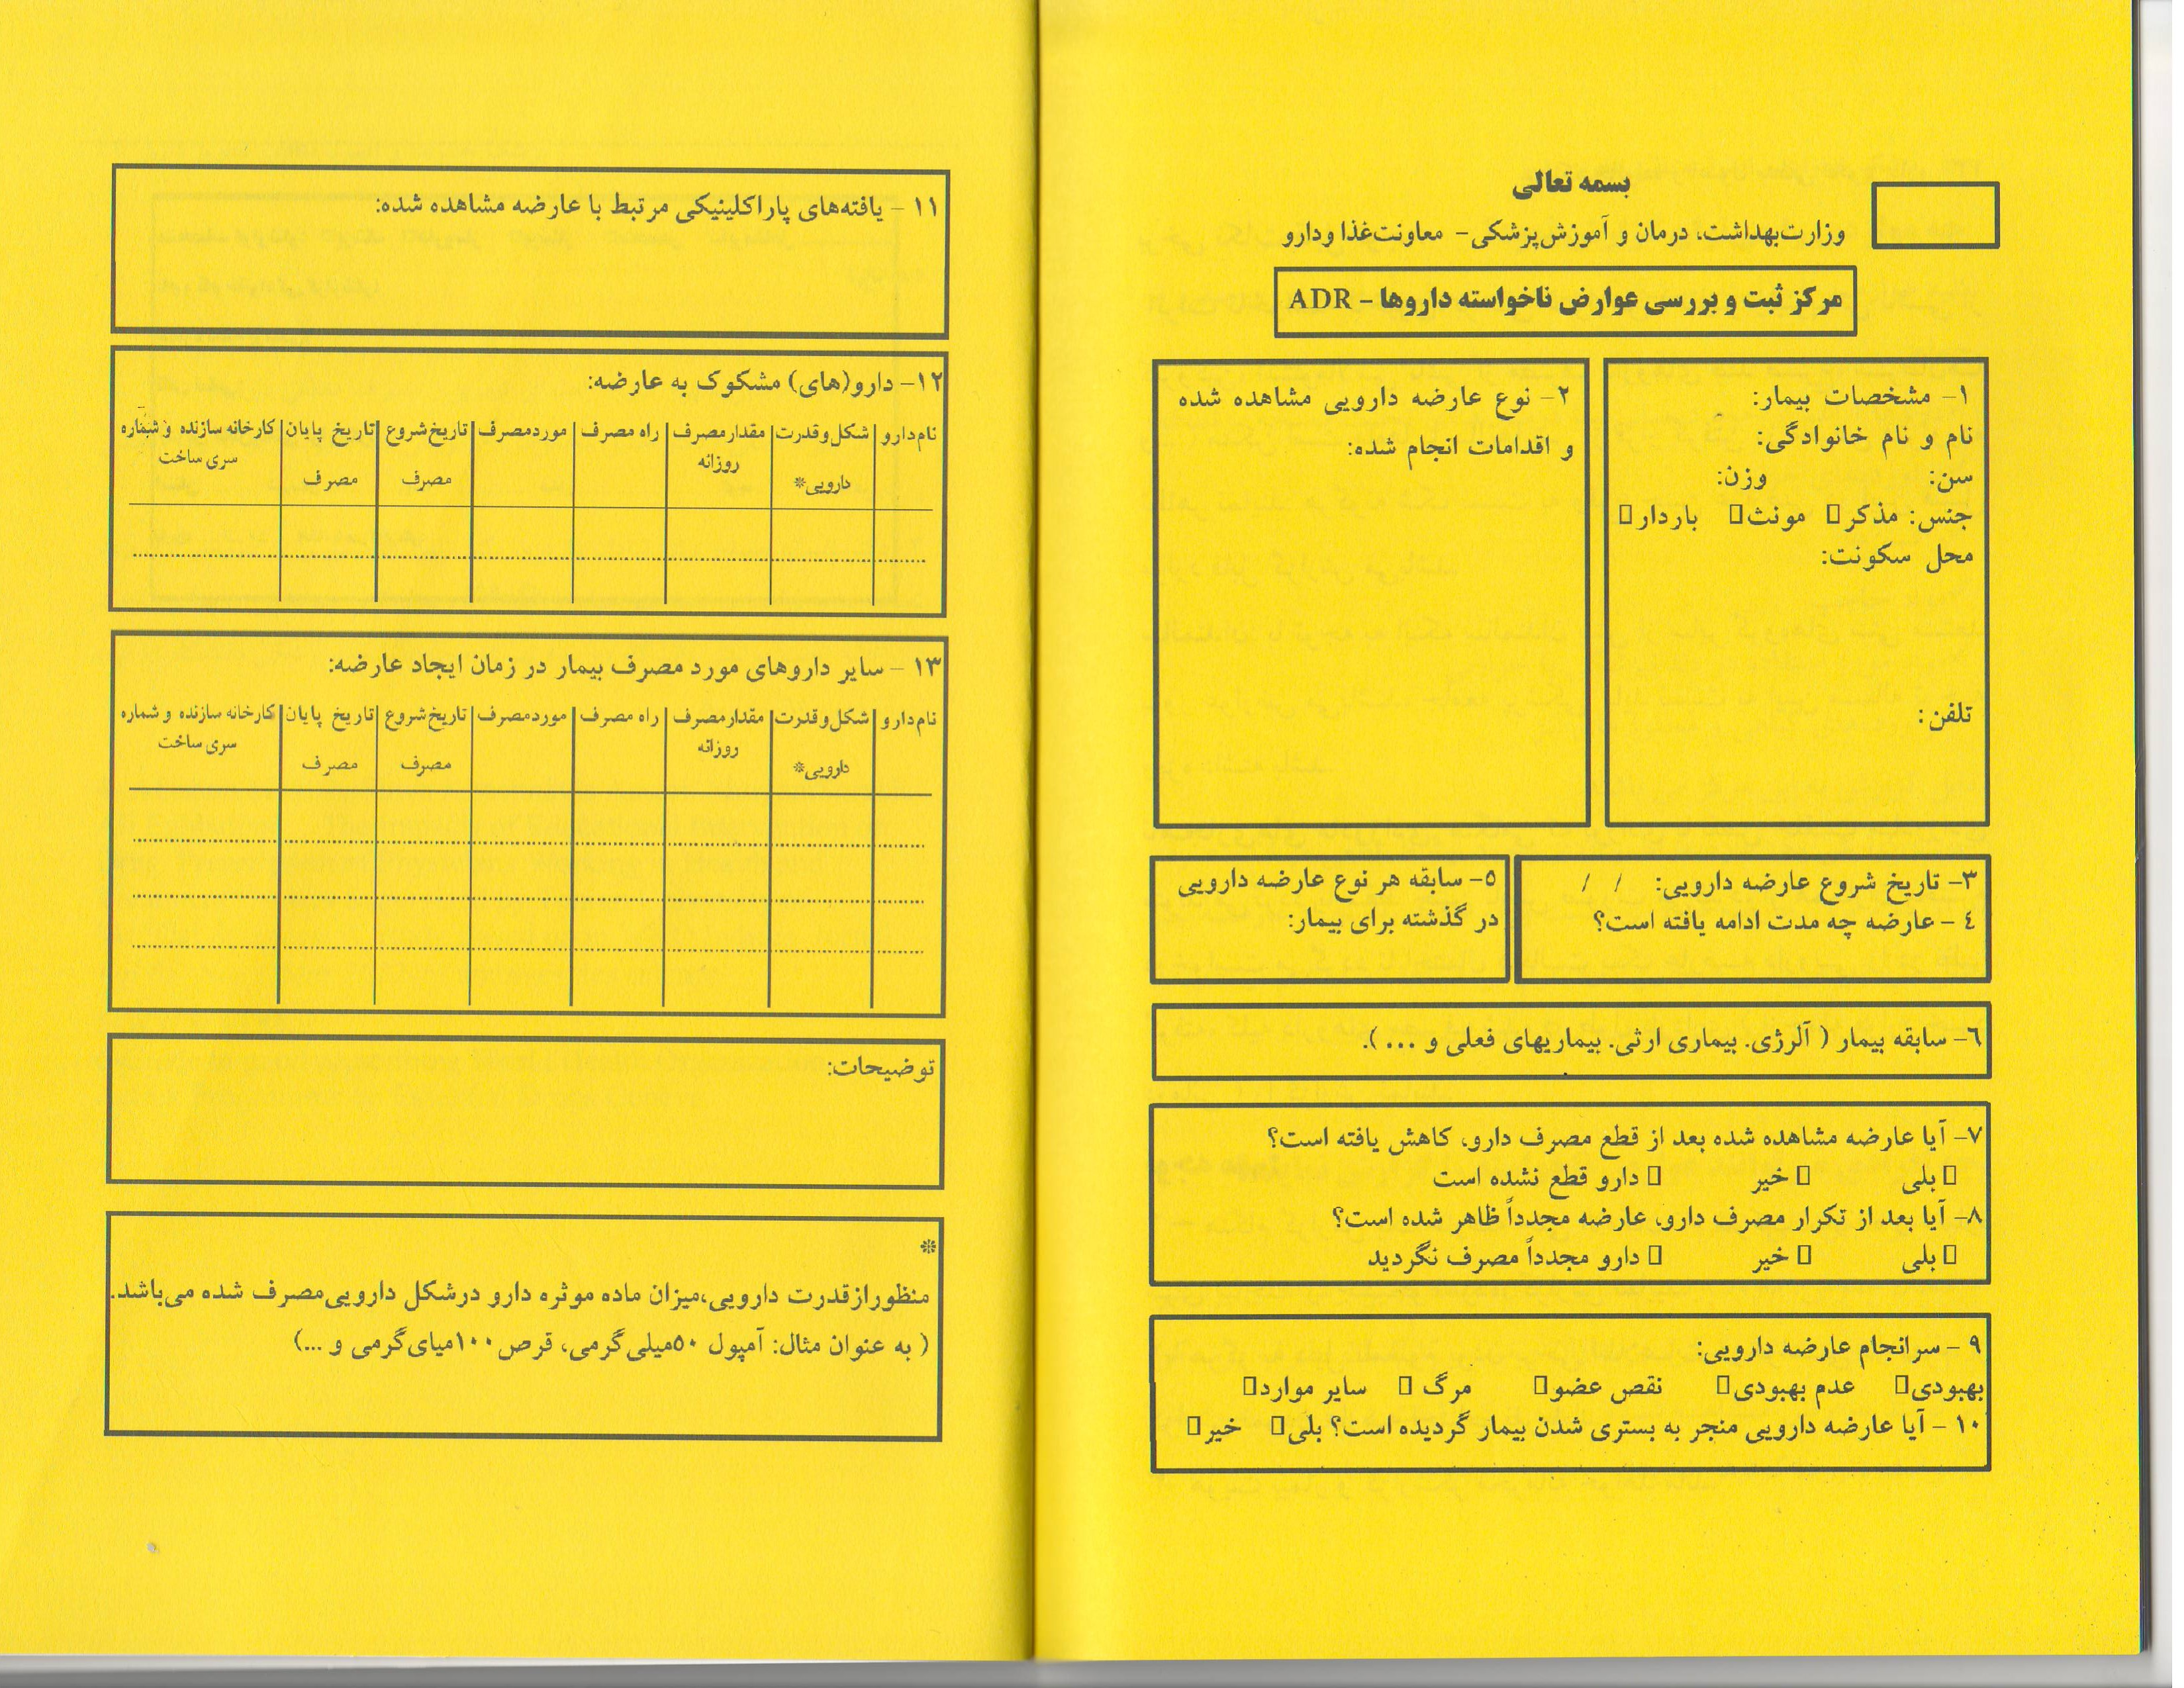 بسمه تعالی
وزارت‌بهداشت، درمان و آموزش‌پزشکی- معاونت‌غذا ودارو
مرکز ثبت و بررسی عوارض ناخواسته داروها - ADR
۱- مشخصات بیمار:
نام و نام خانوادگی:
سن: وزن:
جنس: مذکر▯ مونث▯ باردار▯
محل سکونت:
تلفن:
۲- نوع عارضه دارویی مشاهده شده
و اقدامات انجام شده:
۳- تاریخ شروع عارضه دارویی: / /
٤ - عارضه چه مدت ادامه یافته است؟
٥- سابقه هر نوع عارضه دارویی
در گذشته برای بیمار:
٦- سابقه بیمار ( آلرژی. بیماری ارثی. بیماریهای فعلی و ... ).
۷- آیا عارضه مشاهده شده بعد از قطع مصرف دارو، کاهش یافته است؟
▯ بلی ▯ خیر ▯ دارو قطع نشده است
۸- آیا بعد از تکرار مصرف دارو، عارضه مجدداً ظاهر شده است؟
▯ بلی ▯ خیر ▯ دارو مجدداً مصرف نگردید
۹ - سرانجام عارضه دارویی:
بهبودی▯ عدم بهبودی▯ نقص عضو▯ مرگ ▯ سایر موارد▯
۱۰ - آیا عارضه دارویی منجر به بستری شدن بیمار گردیده است؟ بلی▯ خیر▯
۱۱ - یافته‌های پاراکلینیکی مرتبط با عارضه مشاهده شده:
۱۲- دارو(های) مشکوک به عارضه:
نام‌دارو شکل‌وقدرت مقدارمصرف راه مصرف موردمصرف تاریخ‌شروع تاریخ پایان کارخانه سازنده و شماره
روزانه سری ساخت
دارویی* مصرف مصرف
۱۳ - سایر داروهای مورد مصرف بیمار در زمان ایجاد عارضه:
نام‌دارو شکل‌وقدرت مقدارمصرف راه مصرف موردمصرف تاریخ‌شروع تاریخ پایان کارخانه سازنده و شماره
روزانه سری ساخت
دارویی* مصرف مصرف
توضیحات:
*
منظورازقدرت دارویی،میزان ماده موثره دارو درشکل دارویی‌مصرف شده می‌باشد.
( به عنوان مثال: آمپول ۵۰میلی‌گرمی، قرص۱۰۰میای‌گرمی و ...)